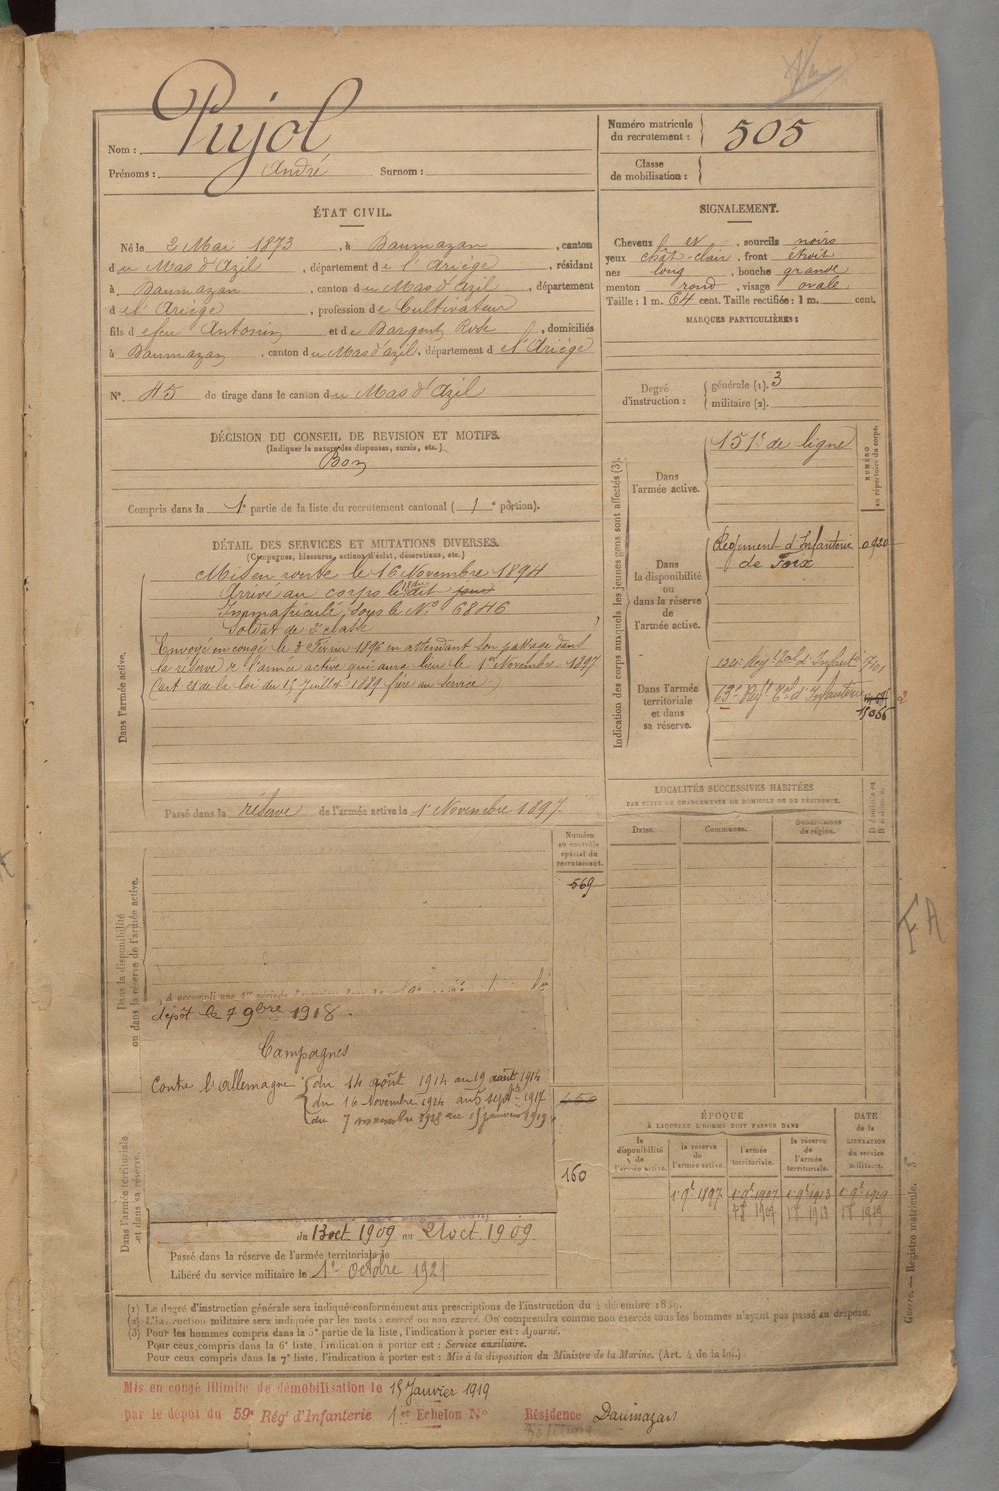 Pujol
Nom :
Prénoms : André Surnom :
Numéro matricule du recrutement : 505
Classe de mobilisation :
ÉTAT CIVIL.
Né le 2 Mai 1873, à Daumazan, canton
du Mas d'Azil, département de l'Ariège, résidant
à Daumazan, canton du Mas d'Azil, département
de l'Ariège, profession de Cultivateur
fils de feu Antonin et de Dargent Rose, domiciliés
à Daumazan, canton du Mas d'azil, département de l'Ariège
N° 45 de tirage dans le canton du Mas d'Azil
SIGNALEMENT.
Cheveux et, sourcils noirs
yeux chât-clair, front étroit
nez long, bouche grande
menton rond, visage ovale
Taille : 1 m. 64 cent. Taille rectifiée : 1 m. cent.
MARQUES PARTICULIÈRES :
Degré d'instruction :
générale (1). 3
militaire (2).
DÉCISION DU CONSEIL DE REVISION ET MOTIFS.
(Indiquer la nature des dispenses, sursis, etc.)
Bon
Compris dans la 1e partie de la liste du recrutement cantonal ( 1 e portion).
DÉTAIL DES SERVICES ET MUTATIONS DIVERSES.
(Campagnes, blessures, actions d'éclat, décorations, etc.)
Dans l'armée active.
Mis en route le 16 Novembre 1894
Arrivé au corps le dit
Immatriculé sous le N° 6846
Soldat de 2e classe
Envoyé en congé le 3 Février 1896 en attendant son passage dans
la réserve de l'armée active qui aura lieu le 1er Novembre 1897
(art 21 de la loi du 15 Juillet 1889 frère au service)
Passé dans la réserve de l'armée active le 1r Novembre 1897
Indication des corps auxquels les jeunes gens sont affectés (3).
NUMÉRO au répertoire du corps.
Dans l'armée active.
151e de ligne
Dans la disponibilité ou dans la réserve de l'armée active.
Régiment d'Infanterie 0920
de Foix
Dans l'armée territoriale et dans sa réserve.
Régt Tal d'Infanterie
Régt Tal d'Infanterie
LOCALITÉS SUCCESSIVES HABITÉES
PAR SUITE DE CHANGEMENTS DE DOMICILE OU DE RÉSIDENCE.
Dates.
Communes.
Subdivisions de région.
Numéro au contrôle spécial du recrutement.
569
Dans la disponibilité ou dans la réserve de l'armée active.
A accompli une 1re période
dépôt le 7 9bre 1918.
Campagnes
Contre l'allemagne du 14 août 1914 au 19 août 1914
du 16 Novembre 1914 au 5 septbre 1917
du 7 novembre 1918 au 15 janvier 1919
160
Dans l'armée territoriale et dans sa réserve.
du 13 oct. 1909 au 21 oct 1909
Passé dans la réserve de l'armée territoriale le
Libéré du service militaire le 1r octobre 1921
ÉPOQUE
À LAQUELLE L'HOMME DOIT PASSER DANS
la disponibilité de l'armée active.
la réserve de l'armée active.
l'armée territoriale.
la réserve de l'armée territoriale.
DATE de la LIBÉRATION du service militaire.
1r 9e 1897 1r 9e 1907 1r 9e 1913 1r 9e 1919
F. A
Guerre. — Registre matricule. 3e
(1) Le degré d'instruction générale sera indiqué conformément aux prescriptions de l'instruction du 4 décembre 1889.
(2) L'instruction militaire sera indiquée par les mots : exercé ou non exercé. On comprendra comme non exercés tous les hommes n'ayant pas passé au drapeau.
(3) Pour les hommes compris dans la 5e partie de la liste, l'indication à porter est : Ajourné.
Pour ceux compris dans la 6e liste, l'indication à porter est : Service auxiliaire.
Pour ceux compris dans la 7e liste, l'indication à porter est : Mis à la disposition du Ministre de la Marine. (Art. 4 de la loi.)
Mis en congé illimité de démobilisation le 15 Janvier 1919
par le dépôt du 59e Régt d'Infanterie 1er Echelon N° Résidence Daumazan